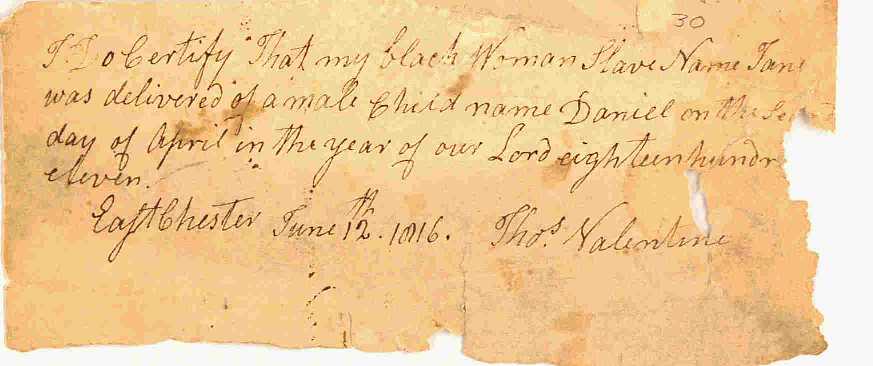 30
I Do Certify That my black Woman Slave Name Jane
was delivered of a male Child name Daniel on the
day of April in the year of our Lord eighteen hundr
eleven.
EastChester June 12th. 1816. Thos. Valentine